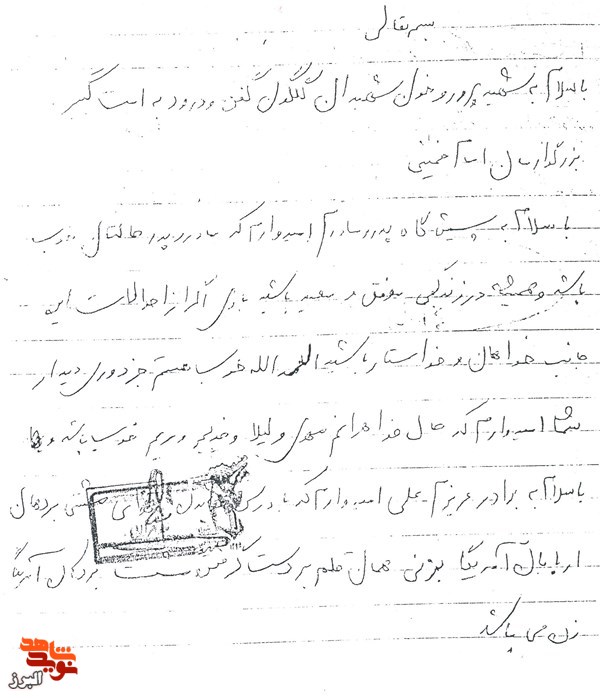 بسمه تعالی
باسلام به شهید پرور و خون شهیدان گلگون کفن و درود به امت
بزرگوارمان امام خمینی
باسلام به پیشگاه پدر و مادرم امیدوارم که مادر و پدر حالتان خوب
باشد و همیشه در زندگی موفق و مؤید باشید باری اگر از احوالات این
جانب خواهان و خواستار باشید الحمد الله خوب هستم جز دوری دیدار
شما امیدوارم که حال خواهرانم و لیلا و خدیجه و مریم خوب باشد و
باسلام به برادر عزیزم علی امیدوارم که با درس مشتی بر دهان
اربابان آمریکا بزنی همان قلم بر دست گرفتن بر دهان آمریکا
زدن می باشد
شاهد
نوید
البرز